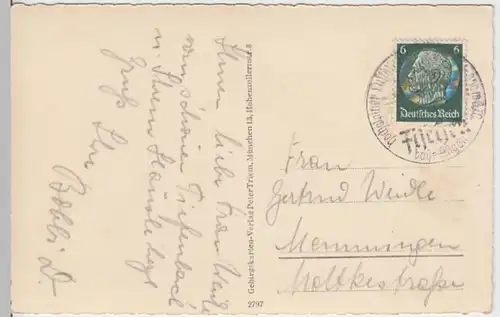 Ihnen, liebe Frau Weidle
vom schönen Tiefenbach
u. Ihrem Häusle liegt
Gruß Ihr
Bobbi D.
Gebirgskarten-Verlag Peter Traem, München 13, Hohenzollernstr.
2797
6 6
Deutsches Reich
Füssen
Frau
Gertrud Weidle
Memmingen
Moltkestraße